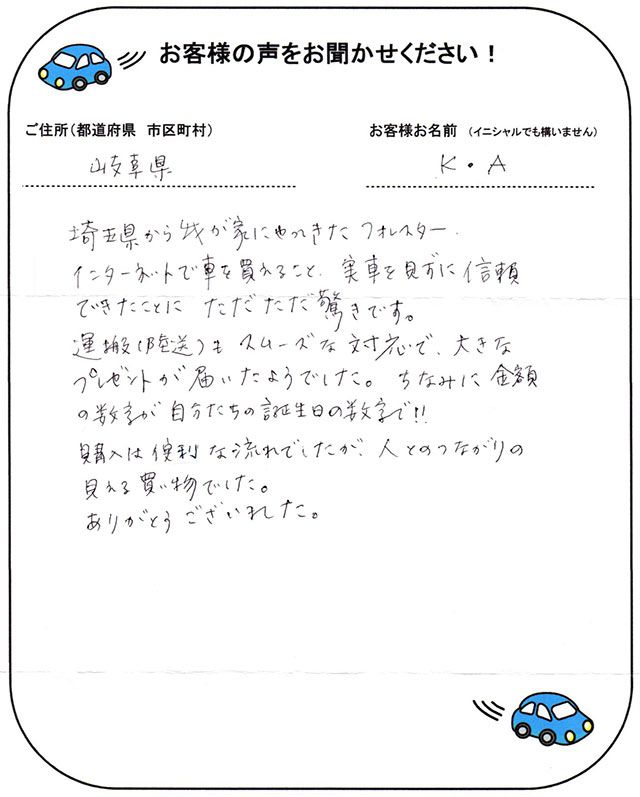 お客様の声をお聞かせください！
ご住所（都道府県　市区町村）
お客様お名前　（イニシャルでも構いません）
岐阜県
K・A
埼玉県から我が家にやってきたフォレスター．
インターネットで車を買えること、実車を見ずに信頼
できたことに ただただ驚きです。
運搬（陸送）も スムーズな対応で、大きな
プレゼントが届いたようでした。ちなみに金額
の数字が自分たちの誕生日の数字で!!
購入は便利な流れでしたが、人とのつながりの
見える買い物でした。
ありがとうございました。